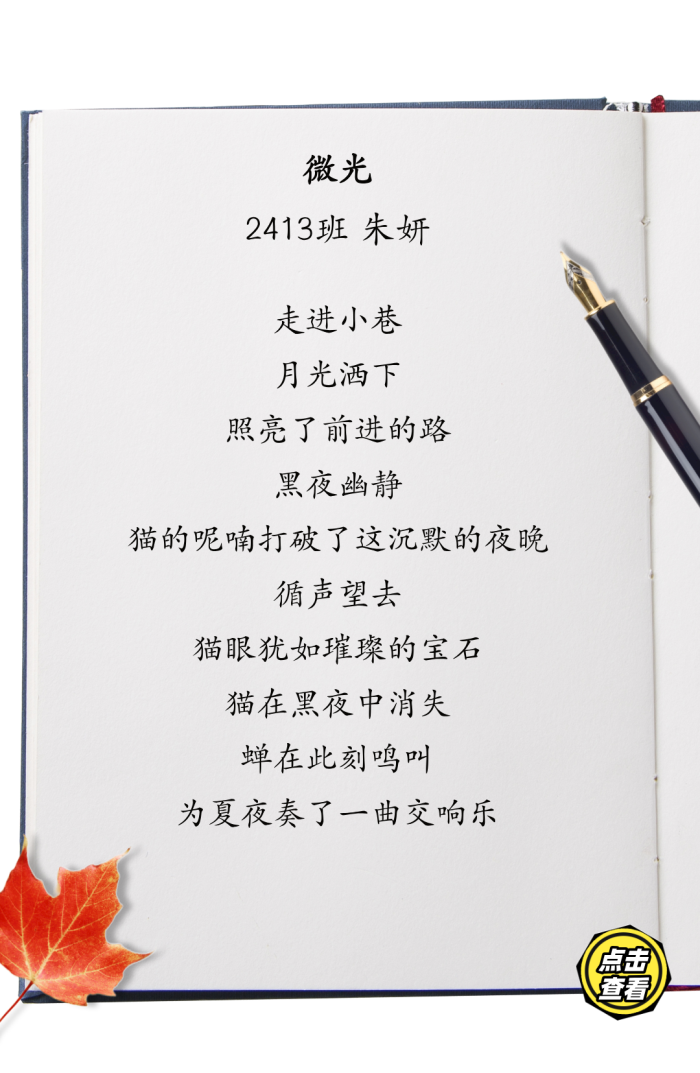 微光
2413班 朱妍
走进小巷
月光洒下
照亮了前进的路
黑夜幽静
猫的呢喃打破了这沉默的夜晚
循声望去
猫眼犹如璀璨的宝石
猫在黑夜中消失
蝉在此刻鸣叫
为夏夜奏了一曲交响乐
点击
查看